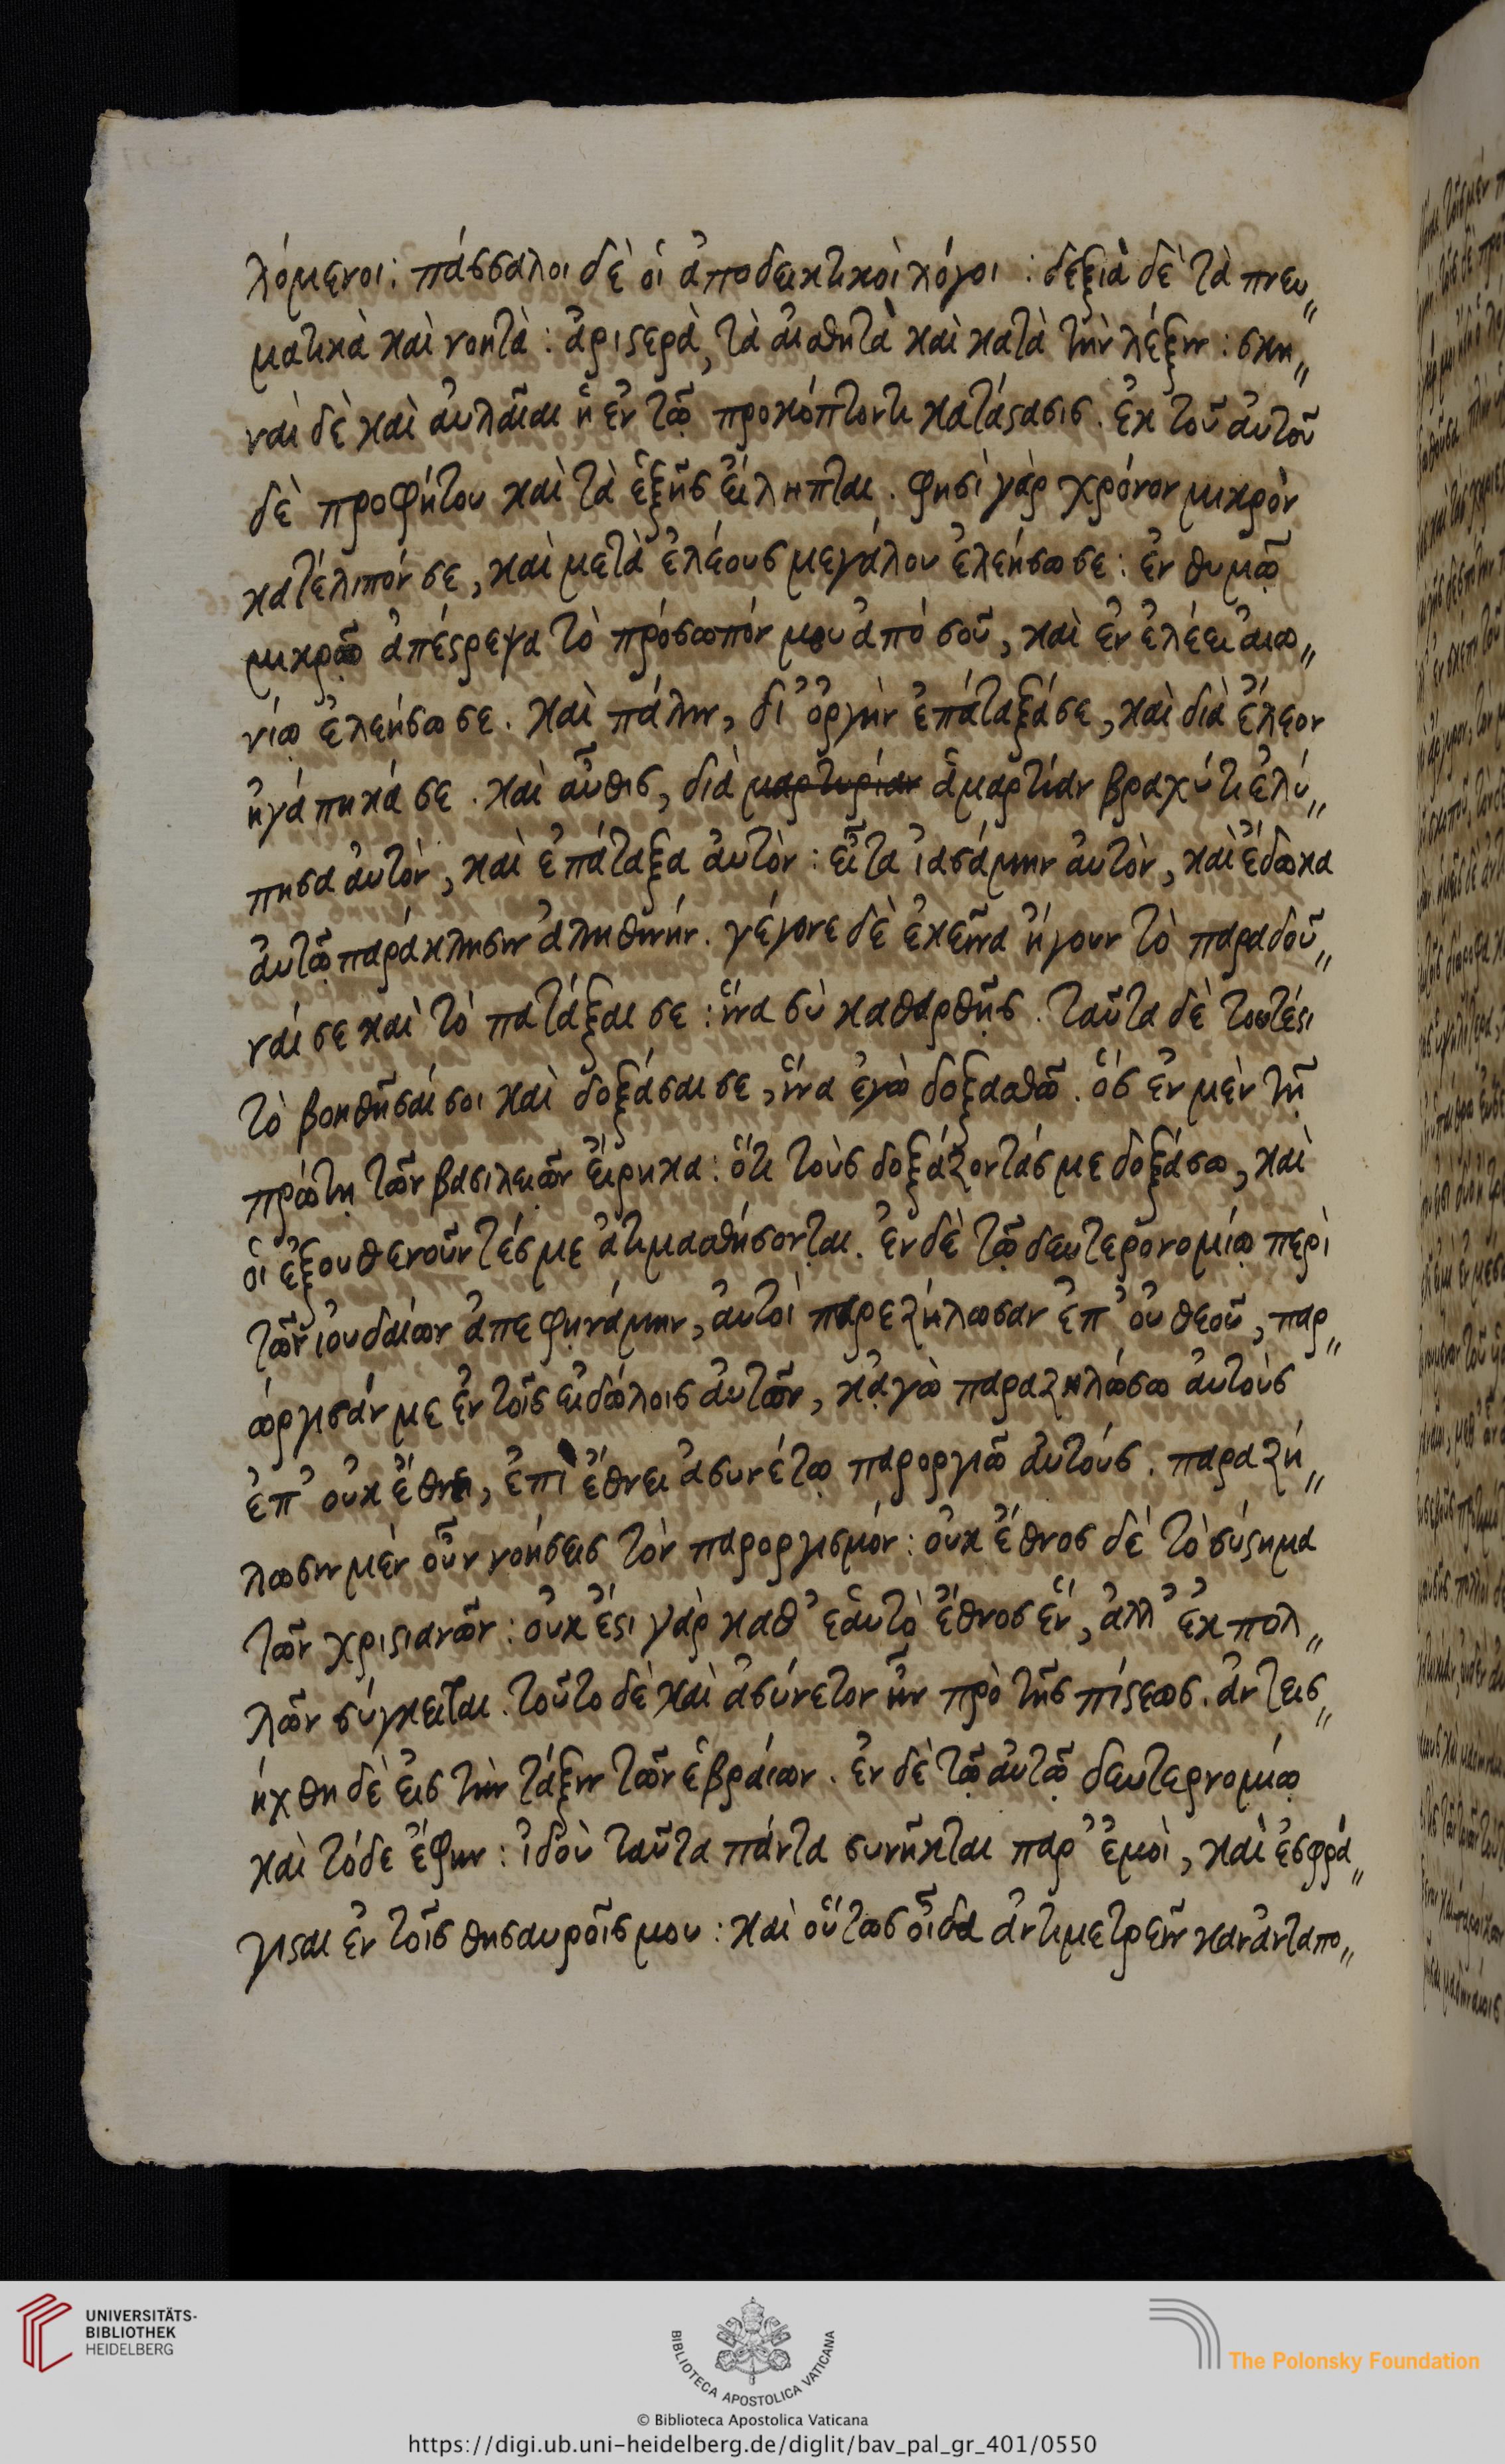 λόμενοι: πάσσαλοι δὲ οἱ ἀποδεικτικοὶ λόγοι: δεξιὰ δὲ τὰ πνευ„
ματικὰ καὶ νοητὰ: ἀριστερὰ, τὰ αἰσθητὰ καὶ κατὰ τὴν λέξιν: σκη„
ναὶ δὲ καὶ αὐλαῖαι ἡ ἐν τῷ προκόπτοντι κατάστασις. ἐκ τοῦ αὐτοῦ
δὲ προφήτου καὶ τὰ ἑξῆς εἴληπται. φησὶ γάρ χρόνον μικρὸν
κατέλιπόν σε, καὶ μετὰ ἐλέους μεγάλου ἐλεήσω σε: ἐν θυμῷ
μικρῷ ἀπέστρεψα τὸ πρόσωπόν μου ἀπὸ σοῦ, καὶ ἐν ἐλέει αἰω„
νίῳ ἐλεήσω σε. καὶ πάλιν, δι’ ὀργὴν ἐπάταξά σε, καὶ διὰ ἔλεον
ἠγάπηκά σε. καὶ αὖθις, διὰ μαρτυρίαν ἁμαρτίαν βραχύ τι ἐλύ„
πησα αὐτὸν, καὶ ἐπάταξα αὐτὸν: εἶτα ἰασάμην αὐτὸν, καὶ ἔδωκα
αὐτῷ παράκλησιν ἀληθινήν. γέγονε δὲ ἐκεῖνα ἤγουν τὸ παραδοῦ„
ναί σε καὶ τὸ πατάξαι σε: ἵνα σὺ καθαρθῇς. ταῦτα δὲ τουτέστι
τὸ βοηθῆσαί σοι καὶ δοξάσαι σε, ἵνα ἐγὼ δοξασθῶ. ὃς ἐν μὲν τῇ
πρώτῃ τῶν βασιλειῶν εἴρηκα: ὅτι τοὺς δοξάζοντάς με δοξάσω, καὶ
οἱ ἐξουθενοῦντές με ἀτιμασθήσονται. ἐν δὲ τῷ δευτερονομίῳ περὶ
τῶν ἰουδαίων ἀπεφηνάμην, αὐτοὶ παρεζήλωσαν ἐπ’ οὐ θεοῦ, παρ„
ώργισάν με ἐν τοῖς εἰδώλοις αὐτῶν, κᾀγὼ παραζηλώσω αὐτοὺς
ἐπ’ οὐκ ἔθνει, ἐπὶ ἔθνει ἀσυνέτῳ παροργιῶ αὐτούς. παραζή„
λωσιν μὲν οὖν νοήσεις τὸν παροργισμόν: οὐκ ἔθνος δὲ τὸ σύστημα
τῶν χριστιανῶν: οὐκ ἔστι γὰρ καθ’ ἑαυτὸ ἔθνος ἕν, ἀλλ’ ἐκ πολ„
λῶν σύγκειται. τοῦτο δὲ καὶ ἀσύνετον ἦν πρὸ τῆς πίστεως. ἀντεισ„
ήχθη δὲ εἰς τὴν τάξιν τῶν ἑβραίων. ἐν δὲ τῷ αὐτῷ δευτερνομίῳ
καὶ τόδε ἔφην: ἰδοὺ ταῦτα πάντα συνῆκται παρ’ ἐμοὶ, καὶ ἐσφρά„
γισται ἐν τοῖς θησαυροῖς μου: καὶ οὕτως οἶδα ἀντιμετρεῖν καὶ ἀνταπο„
UNIVERSITÄTS-
BIBLIOTHEK
HEIDELBERG
BIBLIOTECA APOSTOLICA VATICANA
The Polonsky Foundation
© Biblioteca Apostolica Vaticana
https://digi.ub.uni-heidelberg.de/diglit/bav_pal_gr_401/0550